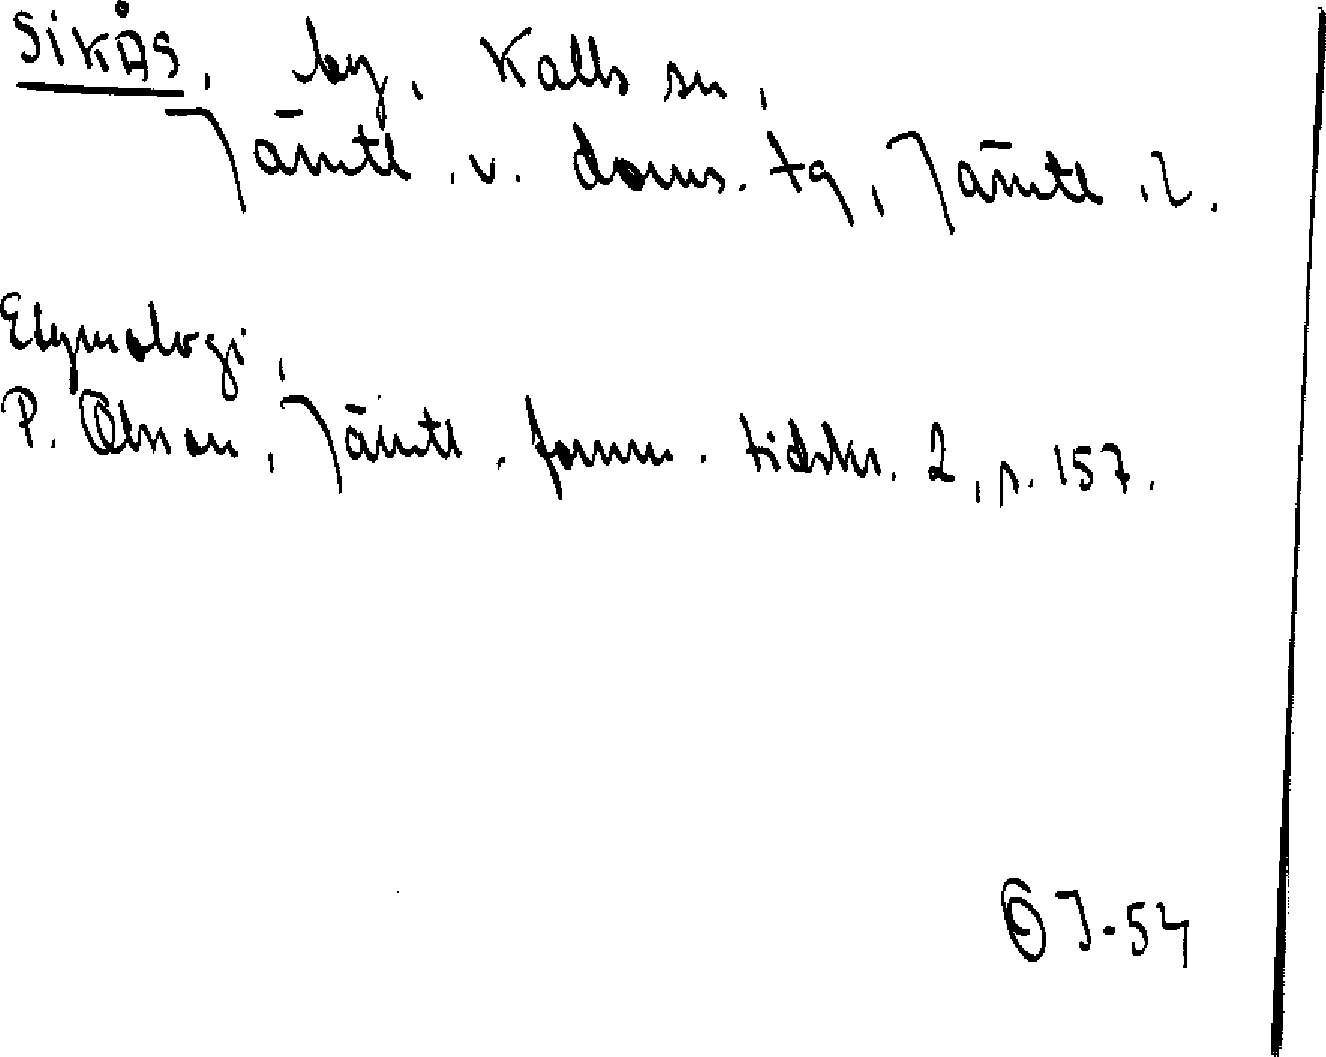 SIKÅS, by, Kalls sn,
Jämtl. v. doms. tg, Jämtl. l.
Etymologi,
P. Olsson, Jämtl. fornm. tidskr. 2, s. 157.
J-54